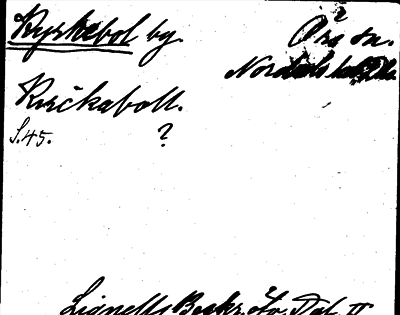 Kyrkebol by. Ör sn.
Nordals hd, Dls.
Kurckaboll.
S.45. ?
Lignells Beskr. öfv. Dal II